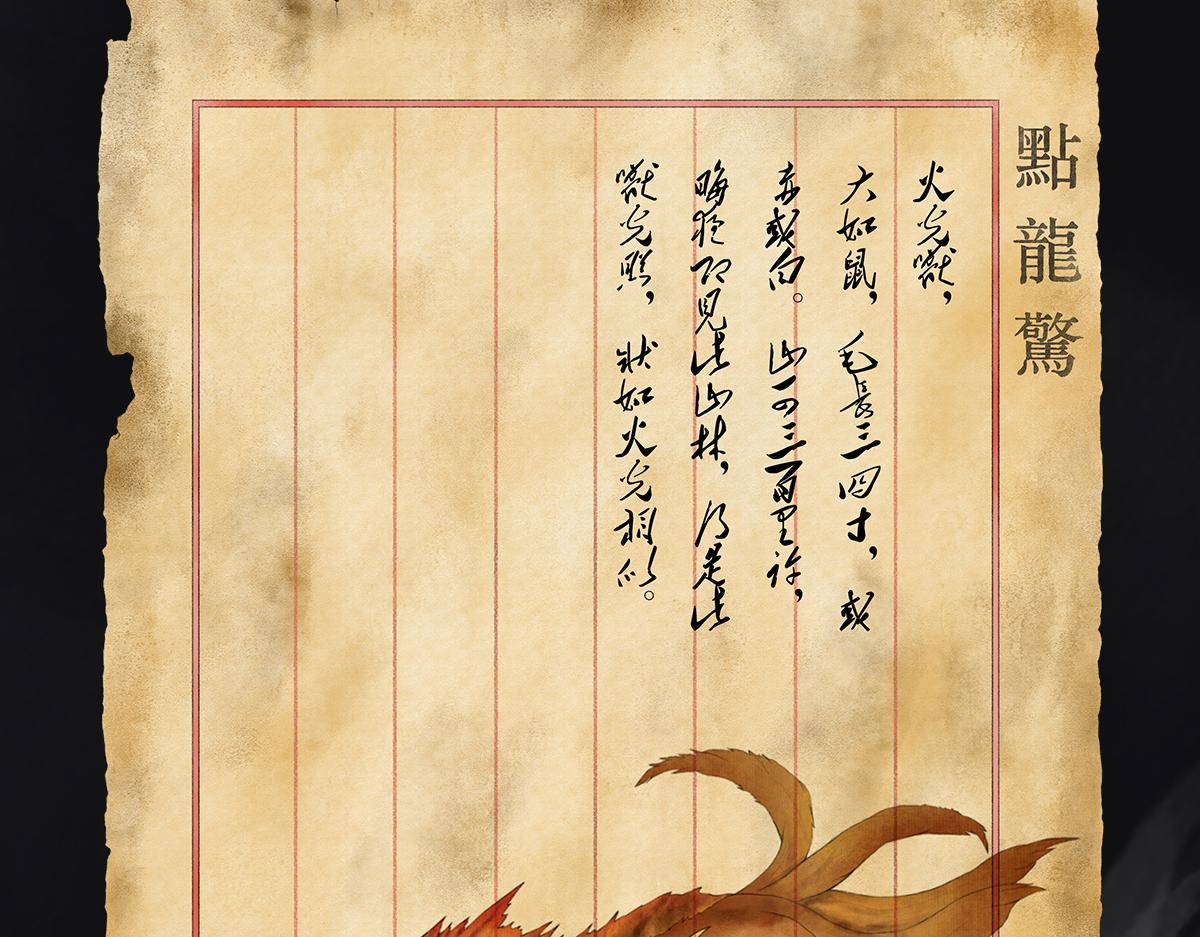 點龍驚
火光獸，
大如鼠，毛長三四寸，或
赤或白。山可三百里許，
晦夜即見此山林，乃是此
獸光照，狀如火光相似。